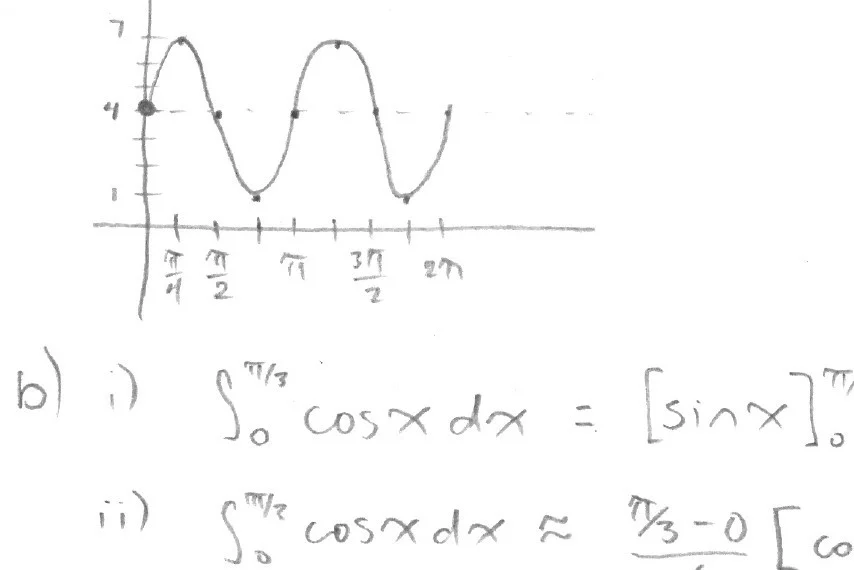 7
4
1
π/4 π/2 π 3π/2 2π
b) i) ∫₀^π/3 cos x dx = [sin x]₀^π/
ii) ∫₀ cos x dx ≈ π/3 - 0 [ co